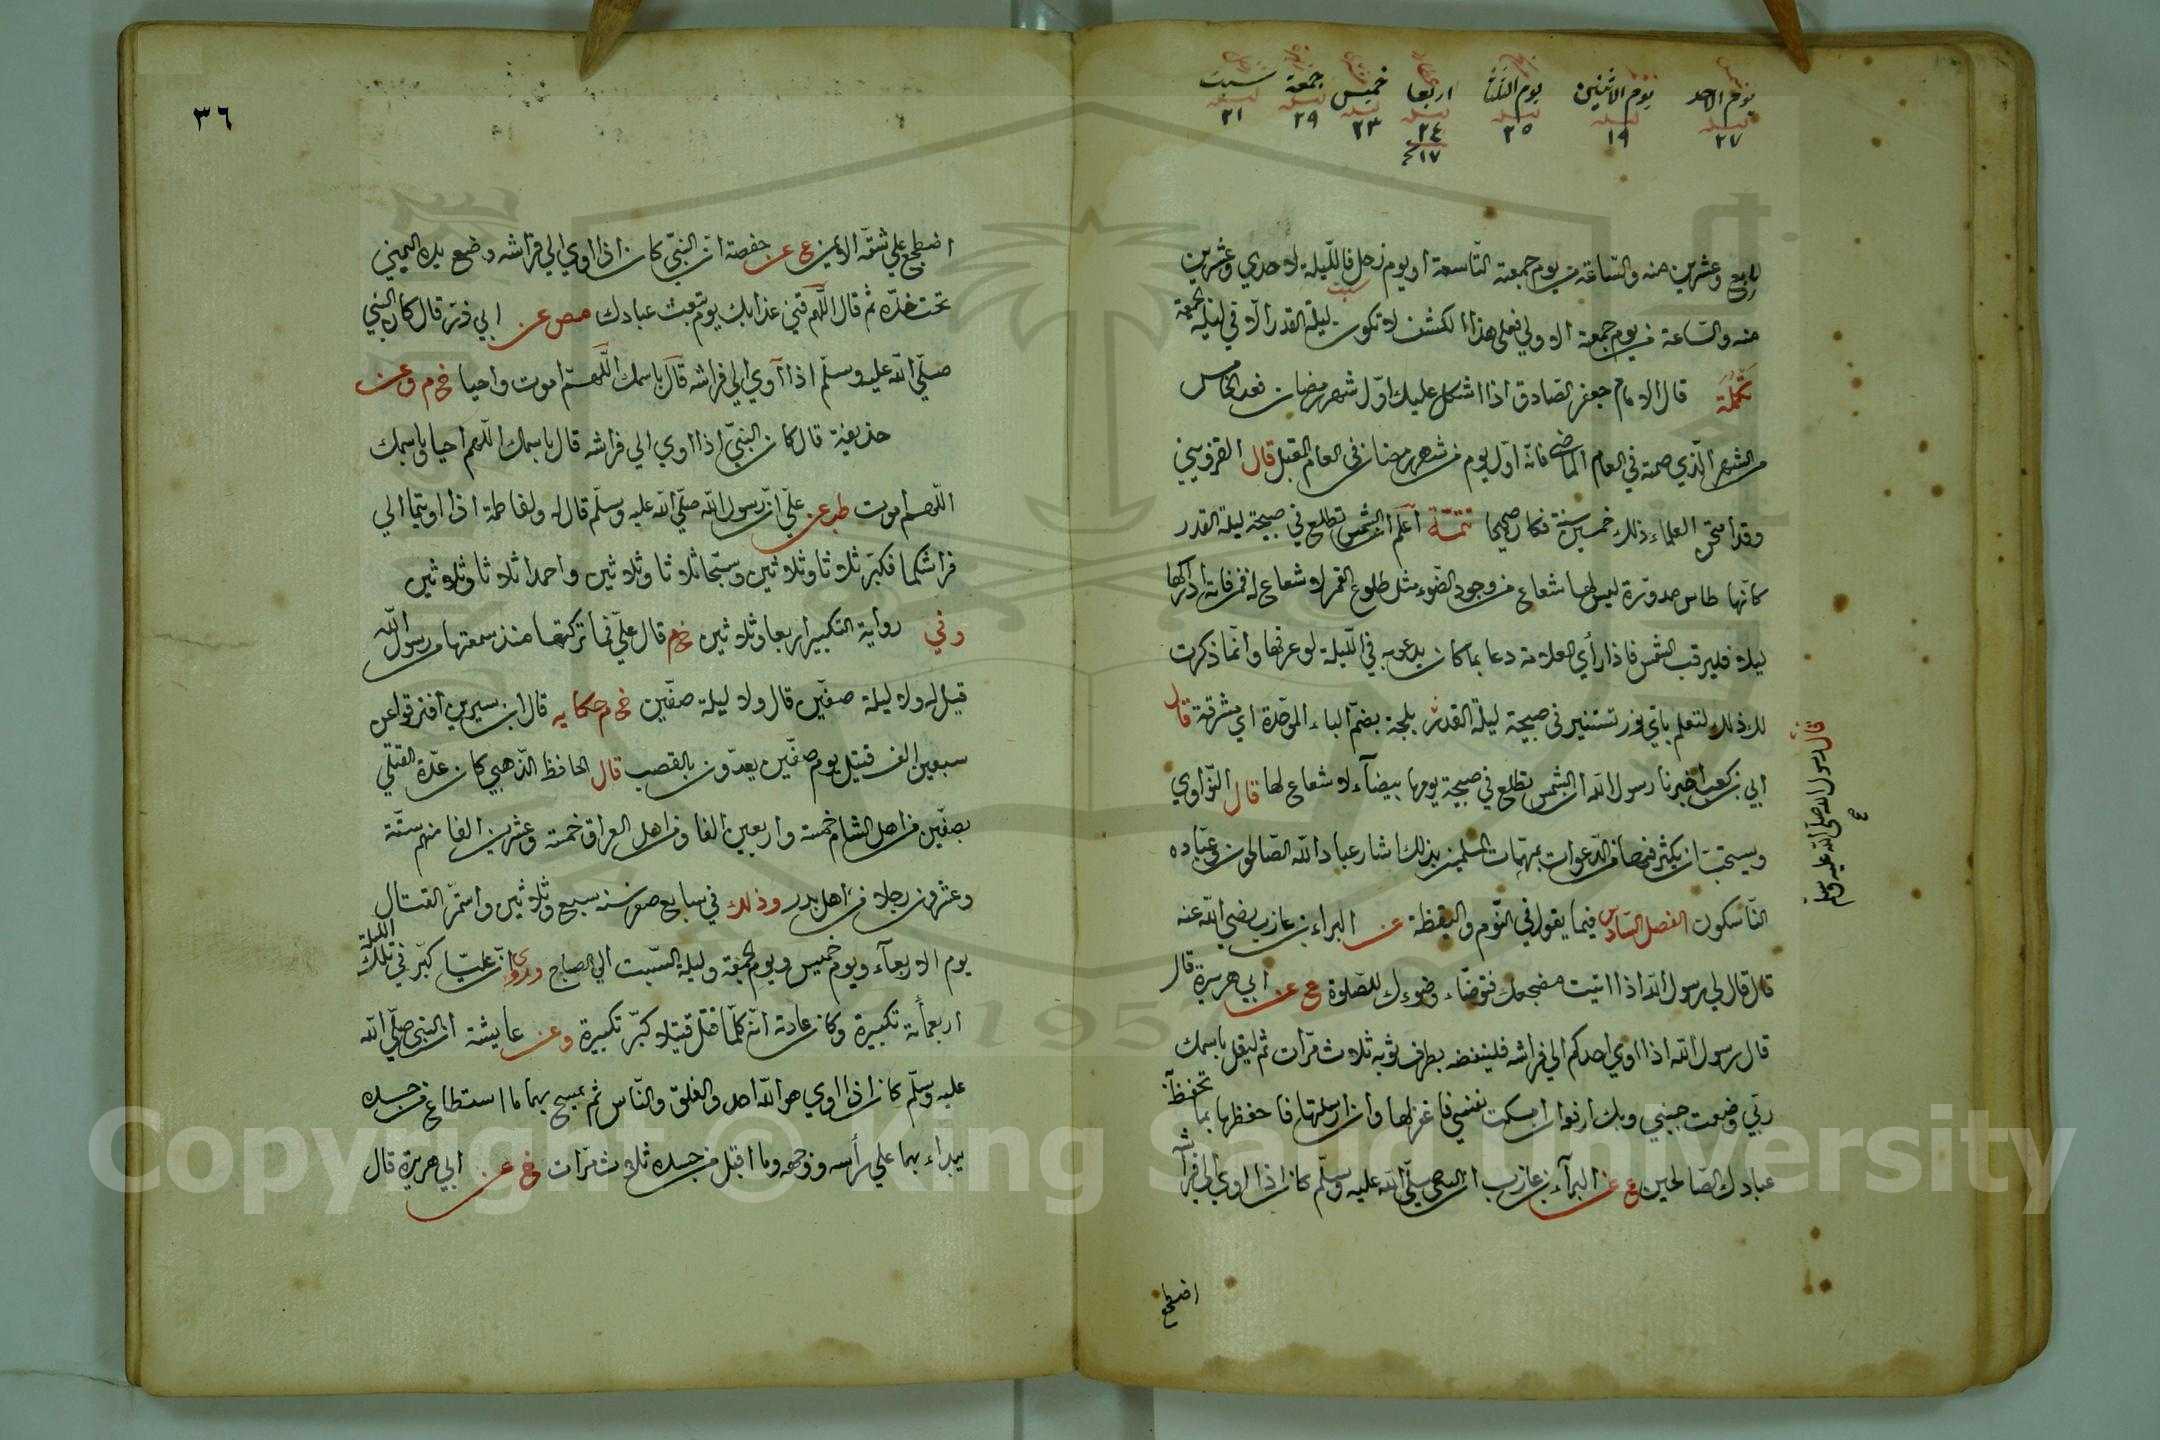 يوم الاحد يوم الاثنين يوم الثلثا اربعا خميس جمعة سبت
ليلة ليلة ليلة ليلة ليلة ليلة ليلة
٢٧ ١٩ ٢٥ ٢٤ ٢٣ ٢٩ ٢١
١٧
رابع وعشرين منه والساعة من يوم جمعة التاسعة او يوم زحل فالليلة لاحدي وعشرين
سبت
منه والساعة من يوم جمعة الاولي فعلي هذا الكشف لا تكون ليلة القدر الا في ليلة الجمعة
تكملة قال الامام جعفر الصادق اذا اشكل عليك اول شهر رمضان فعد الخامس
من الشهر الذي صمته في العام الماضي فانه اول يوم من شهر رمضان في العام المقبل قال القزويني
وقد امتحن العلماء ذلك خمسين سنة فكان صحيحا تتمة اعلم ان الشمس تطلع في صبيحة ليلة القدر
كانها طاس مدورة ليس لها شعاع من وجود الضوء مثل طلوع القمر لا شعاع له فمن فاته ادراكها
ليلا فليرقب الشمس فاذا رأي العلامة دعا بما كان يدعو به في الليلة لو عرفها وانما ذكرت
لك ذلك لتعلم باي نور تستنير في صبيحة ليلة القدر بلجة بضم الباء الموحدة اي مشرقة قال
ابي بن كعب اخبرنا رسول الله ان الشمس تطلع في صبيحة يومها بيضآء لا شعاع لها قال النواوي
ويستحب ان يكثر فيها من الدعوات بمهمات المسلمين بذلك اشار عباد الله الصالحون في عباده
الناسكون الفصل السادس فيما يقول في النوم واليقظة عن البراء بن عازب رضي الله عنه
قال قال لي رسول الله اذا اتيت مضجعك فتوضاء وضوءك للصلوة ع عن ابي هريرة قال
قال رسول الله اذا اوي احدكم الي فراشه فلينفضه بطرف ثوبه ثلاث مرات ثم ليقل باسمك
ربي وضعت جنبي وبك ارفع ان امسكت نفسي فاغفر لها وان ارسلتها فاحفظها بما تحفظ به
عبادك الصالحين ع عن البرآء بن عازب ان النبي صلي الله عليه وسلم كان اذا اوي الي فراشه
اضطجع
قال رسول الله صلي الله عليه وسلم
٣٦
اضطجع علي شقه الايمن ع عن حفصة ان النبي كان اذا اوي الي فراشه وضع يده اليمني
تحت خده ثم قال اللهم قني عذابك يوم تبعث عبادك مص عن ابي ذر قال كان النبي
صلي الله عليه وسلم اذا آوي الي فراشه قال باسمك اللهم اموت واحيا خ م وعن
حذيفة قال كان النبي اذا اوي الي فراشه قال باسمك اللهم احيا وباسمك
اللهم اموت عن علي ان رسول الله صلي الله عليه وسلم قال له ولفاطمة اذا اويتما الي
فراشكما فكبرا ثلاثا وثلاثين وسبحا ثلاثا وثلاثين واحمدا ثلاثا وثلاثين
وفي رواية التكبير اربعا وثلاثين خ م قال علي فما تركتها منذ سمعتها من رسول الله
قيل له ولا ليلة صفين قال ولا ليلة صفين خ م حكايه قال ابن سيرين افترقوا عن
سبعين الف قتيل يوم صفين يعدون بالقصب قال الحافظ الذهبي كان عدة القتلي
بصفين من اهل الشام خمسة واربعين الفا ومن اهل العراق خمسة وعشرين الفا منهم ستة
وعشرون رجلا من اهل بدر وذلك في سابع صفر سنه سبع وثلاثين واستمر القتال
يوم الاربعآء ويوم خميس ويوم الجمعة وليلة السبت الي الصباح وروي ان عليا كبر في تلك الليلة
اربعمأئة تكبيرة وكان عادته انه كلما قتل قتيلا كبر تكبيرة وعن عايشة ان النبي صلي الله
عليه وسلم كان اذا اوي هو الله احد والفلق والناس ثم يمسح بهما ما استطاع من جسده
يبداء بهما علي رأسه ووجهه وما اقبل من جسده ثلاث مرات خ عن ابي هريرة قال
Copyright © King Saud University
1957